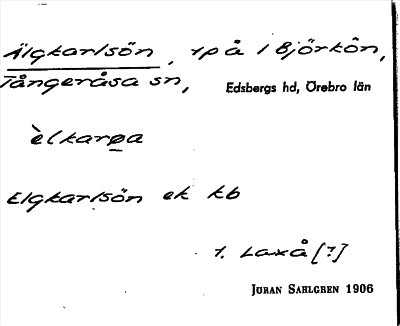 Älgkarlsön, 1p å i Björkön,
Tångeråsa sn, Edsbergs hd, Örebro län
èlkarøa
Elgkarlsön ek kb
1. Laxå [?]
JÖRAN SAHLGREN 1906